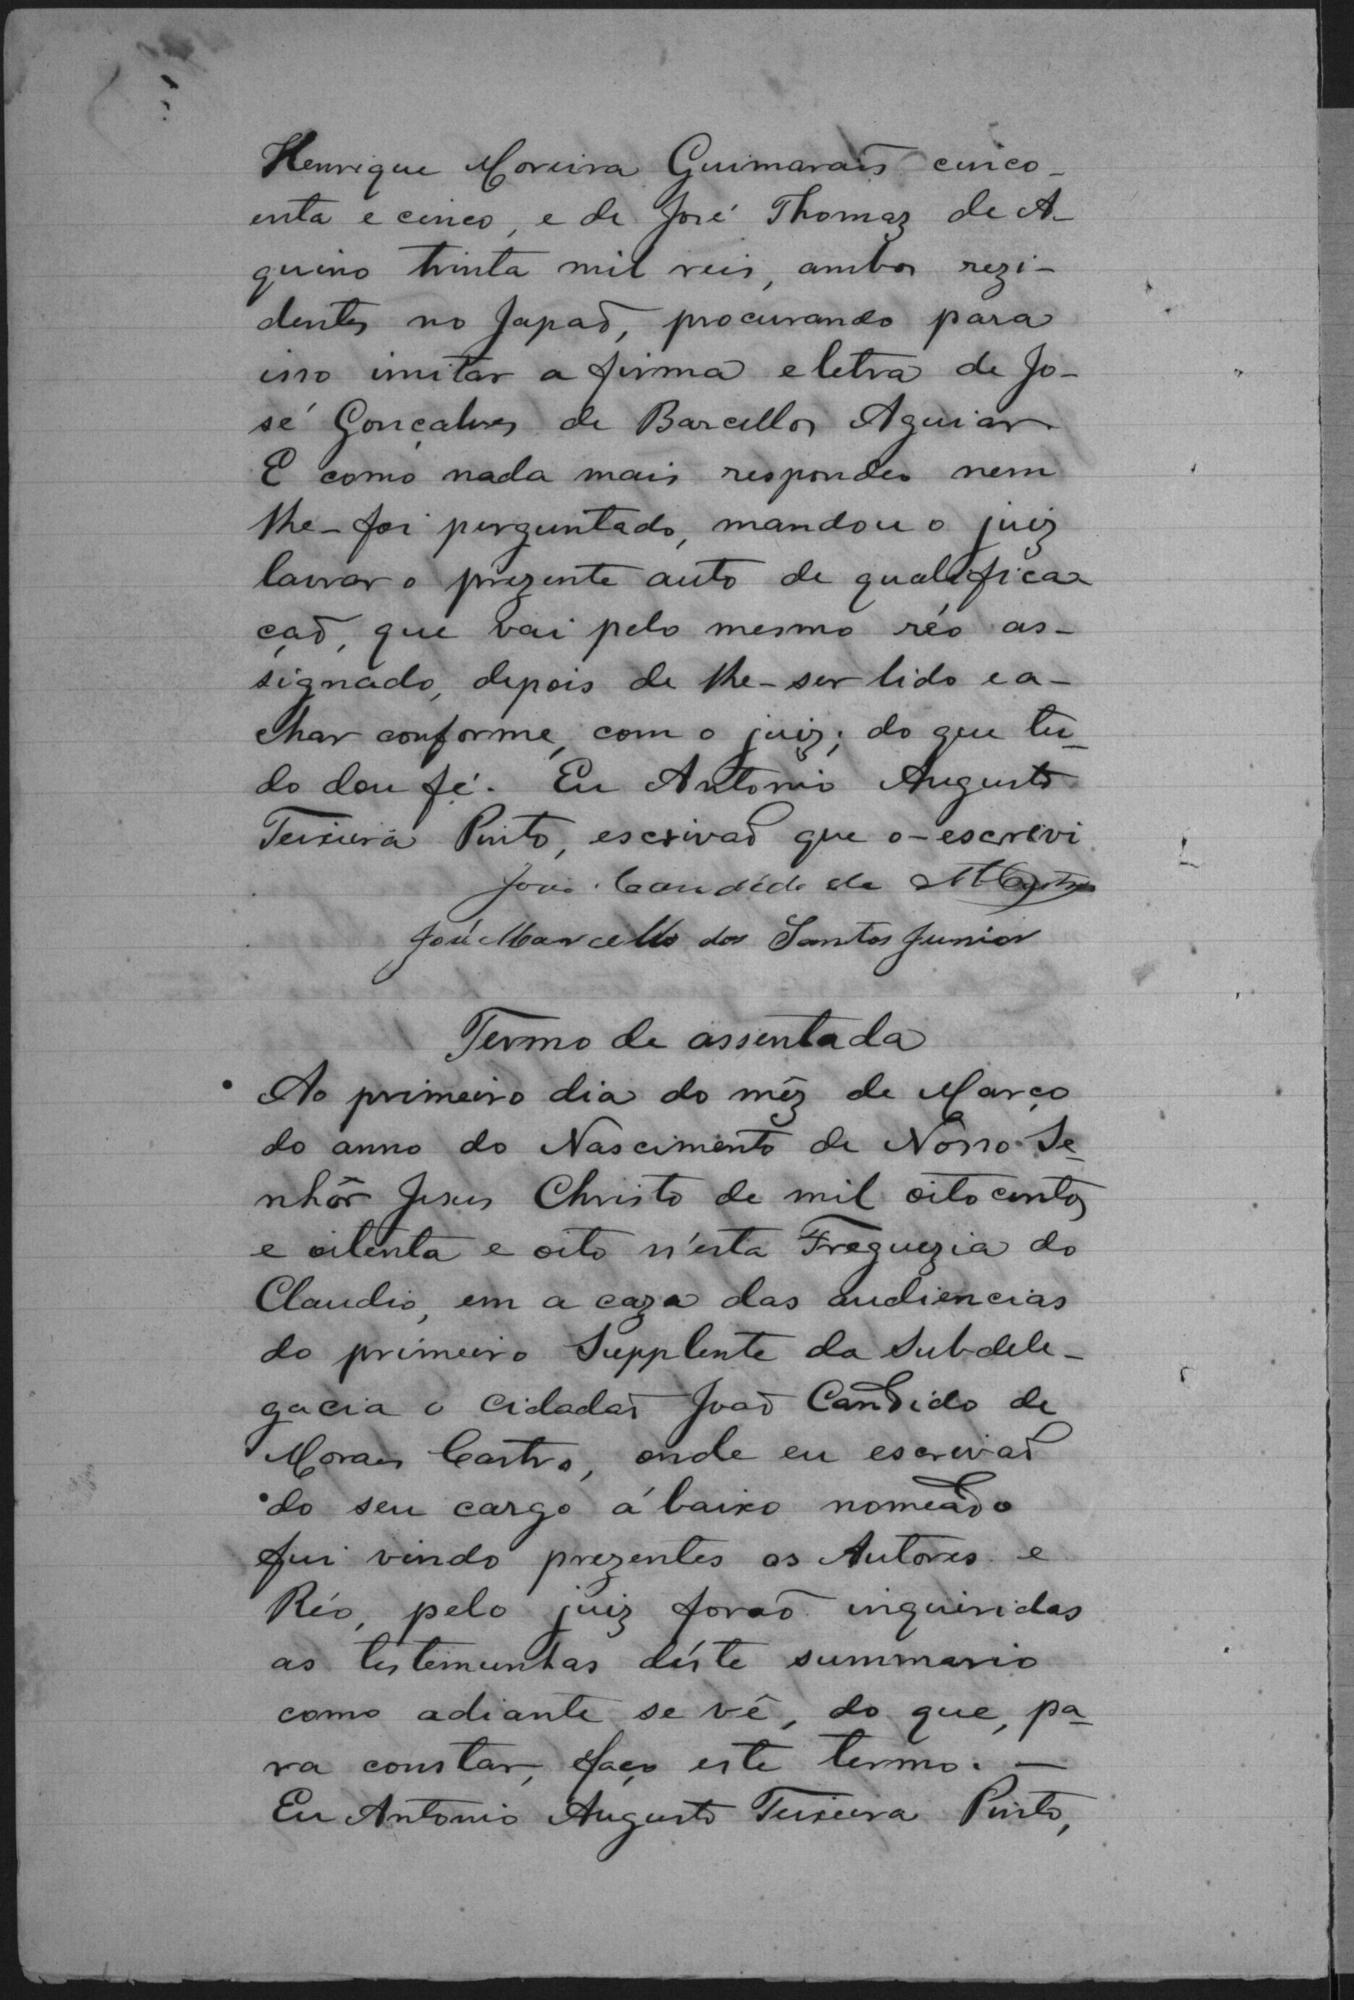 Henrique Moreira Guimaraís cinco-
enta e cinco, e de José Thomaz de A-
quino trinta mil reis, ambos rezi-
dentes no Japaõ, procurando para
isso imitar a firma e letra de Jo-
sé Gonçalves de Barcellos Aguiar
E como nada mais respondeo nem
lhe-foi perguntado, mandou o juiz
lavrar o prezente auto de qualifica
çaõ, que vai pelo mesmo réo as-
signado, depois de lhe-ser lido e a-
char conforme, com o juiz; do que tu-
do dou fé. Eu Antonio Augusto
Teixeira Pinto, escrivaõ que o-escrevi
Joaõ Candido de M Castro
José Marcello dos Santos Junior
Termo de assentada
Ao primeiro dia do mêz de Março
do anno do Nascimento de Nosso Se-
nhôr Jesus Christo de mil oitocentos
e oitenta e oito n'esta Freguezia do
Claudio, em a caza das audiencias
do primeiro Supplente da Subdele-
gacia o cidadaõ Joaõ Candido de
Moraes Castro, onde eu escrivaõ
do seu cargo á baixo nomeado
fui vindo prezentes os Autores e
Réo, pelo juiz foraõ inquiridas
as testemunhas déste summario
como adiante se vê, do que, pa-
ra constar, faço este termo. —
Eu Antonio Augusto Teixeira Pinto,